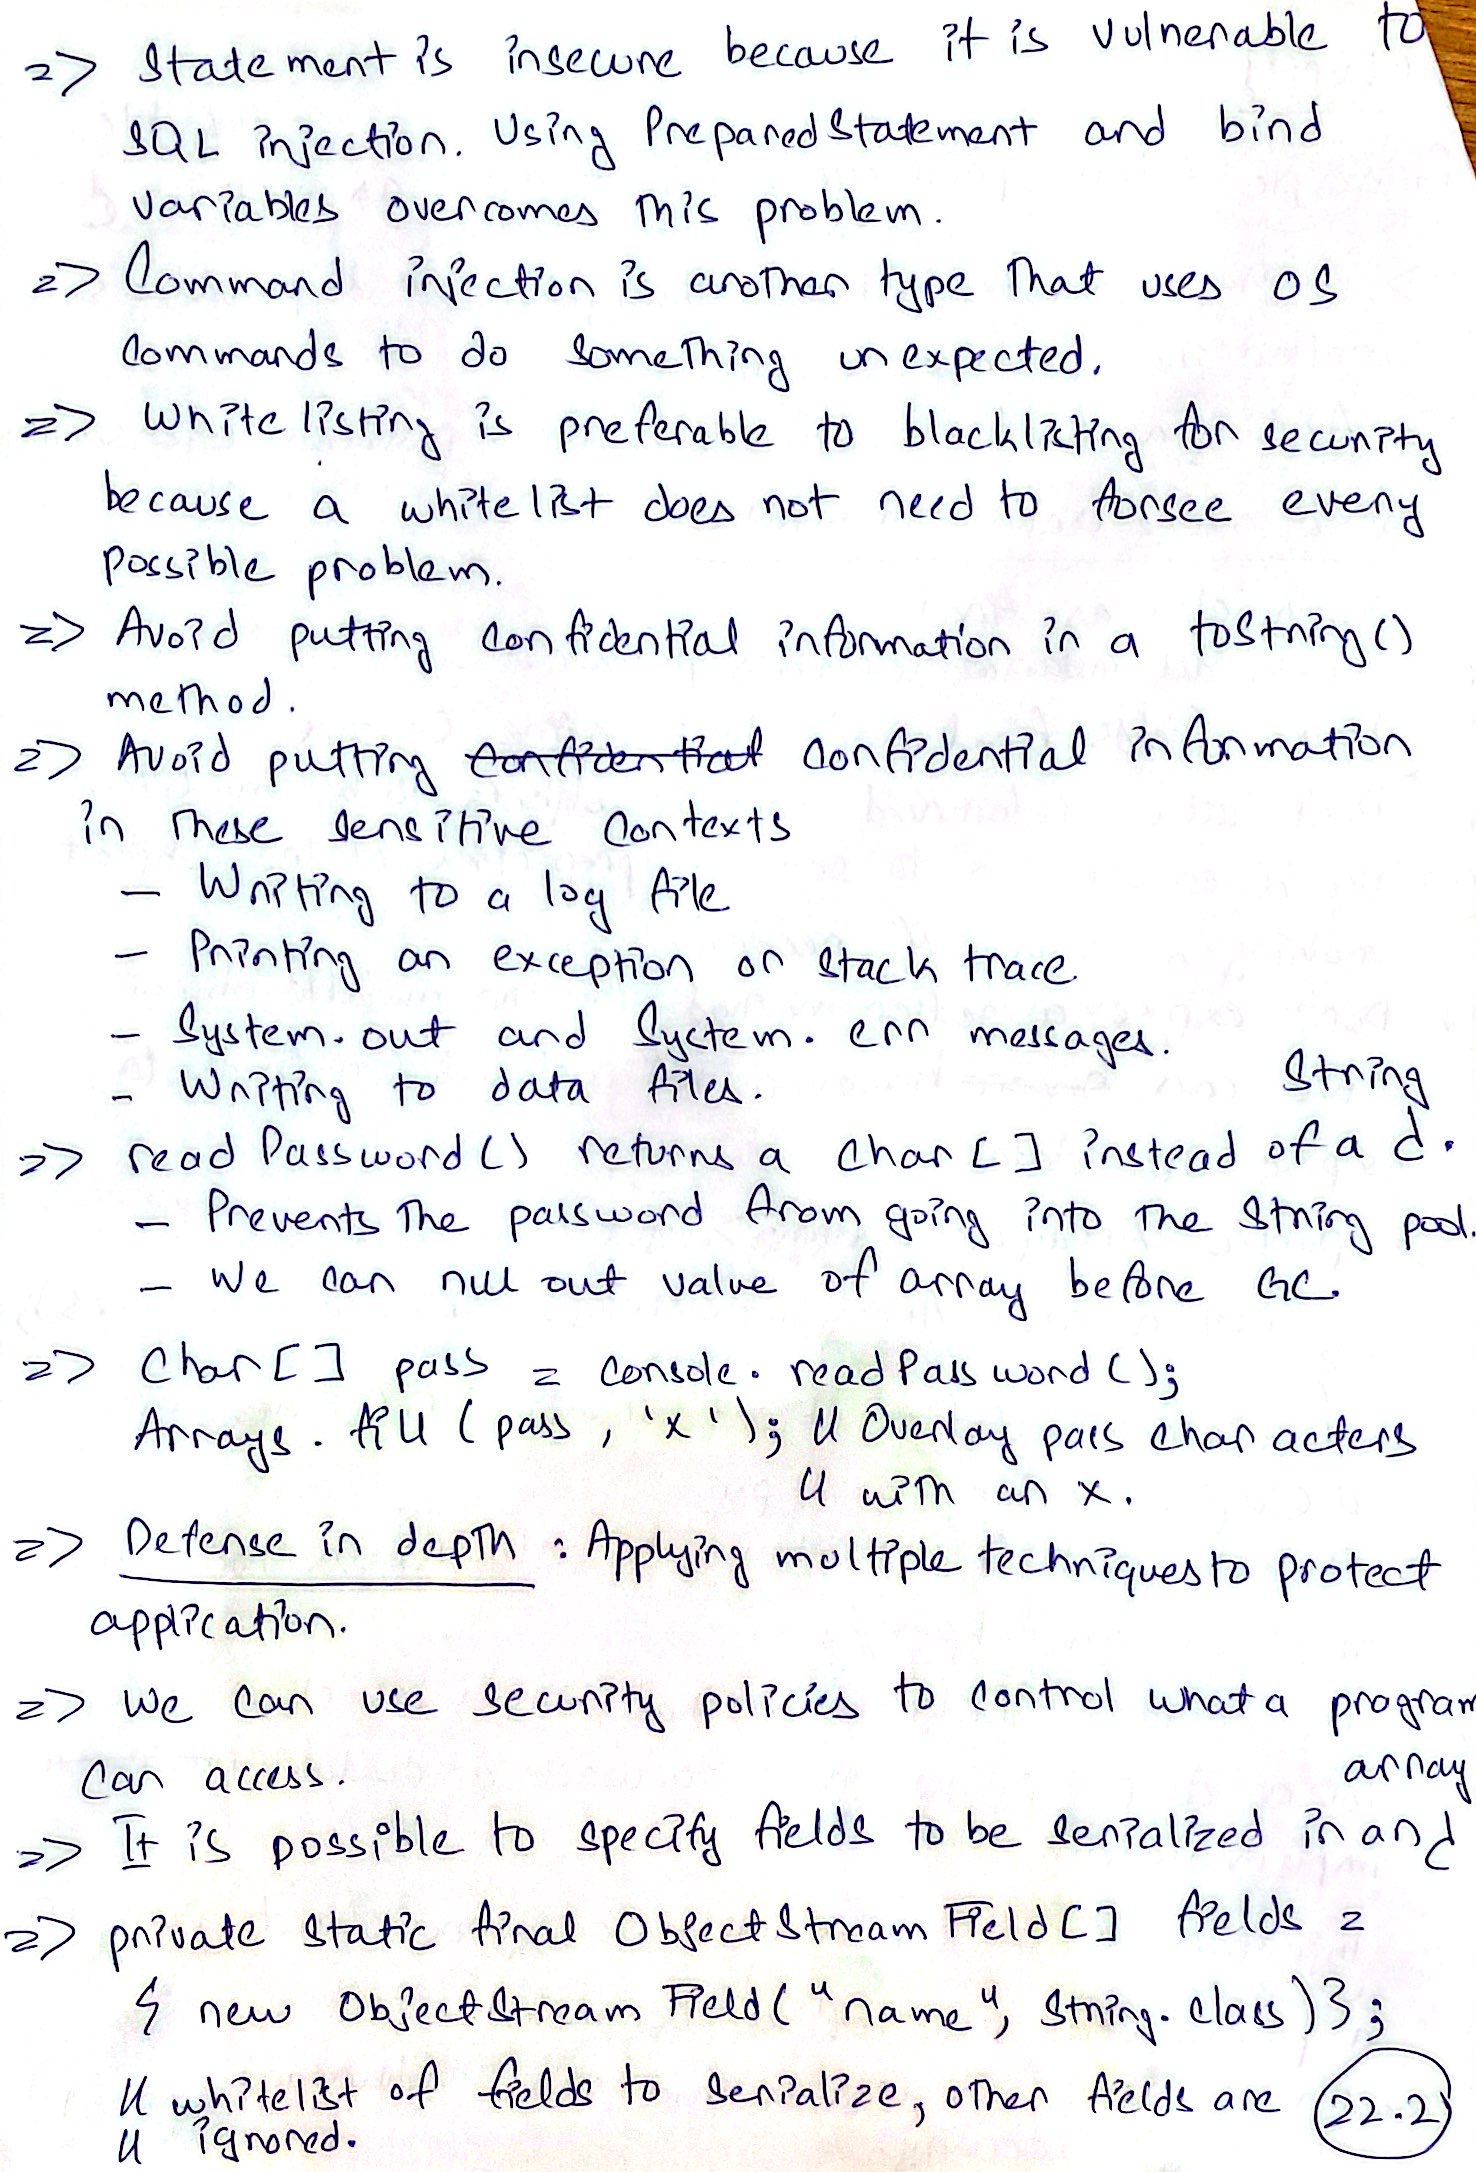 => Statement is insecure because it is vulnerable to
SQL injection. Using PreparedStatement and bind
variables overcomes this problem.
=> Command injection is another type that uses OS
commands to do something unexpected.
=> Whitelisting is preferable to blacklisting for security
because a whitelist does not need to forsee every
possible problem.
=> Avoid putting confidential information in a toString()
method.
=> Avoid putting confidential confidential information
in these sensitive contexts
- Writing to a log file
- Printing an exception or stack trace
- System.out and System.err messages.
- Writing to data files.
String
=> readPassword() returns a char[] instead of a
- Prevents the password from going into the String pool.
- We can null out value of array before GC.
=> Char[] pass = console.readPassword();
Arrays.fill(pass, 'x'); // Overlay pass characters
// with an x.
=> Defense in depth : Applying multiple techniques to protect
application.
=> We can use security policies to control what a program
can access.
array
=> It is possible to specify fields to be serialized in an
=> private static final ObjectStreamField[] fields =
{ new ObjectStreamField("name", String.class)};
// whitelist of fields to serialize, other fields are
// ignored.
22.2